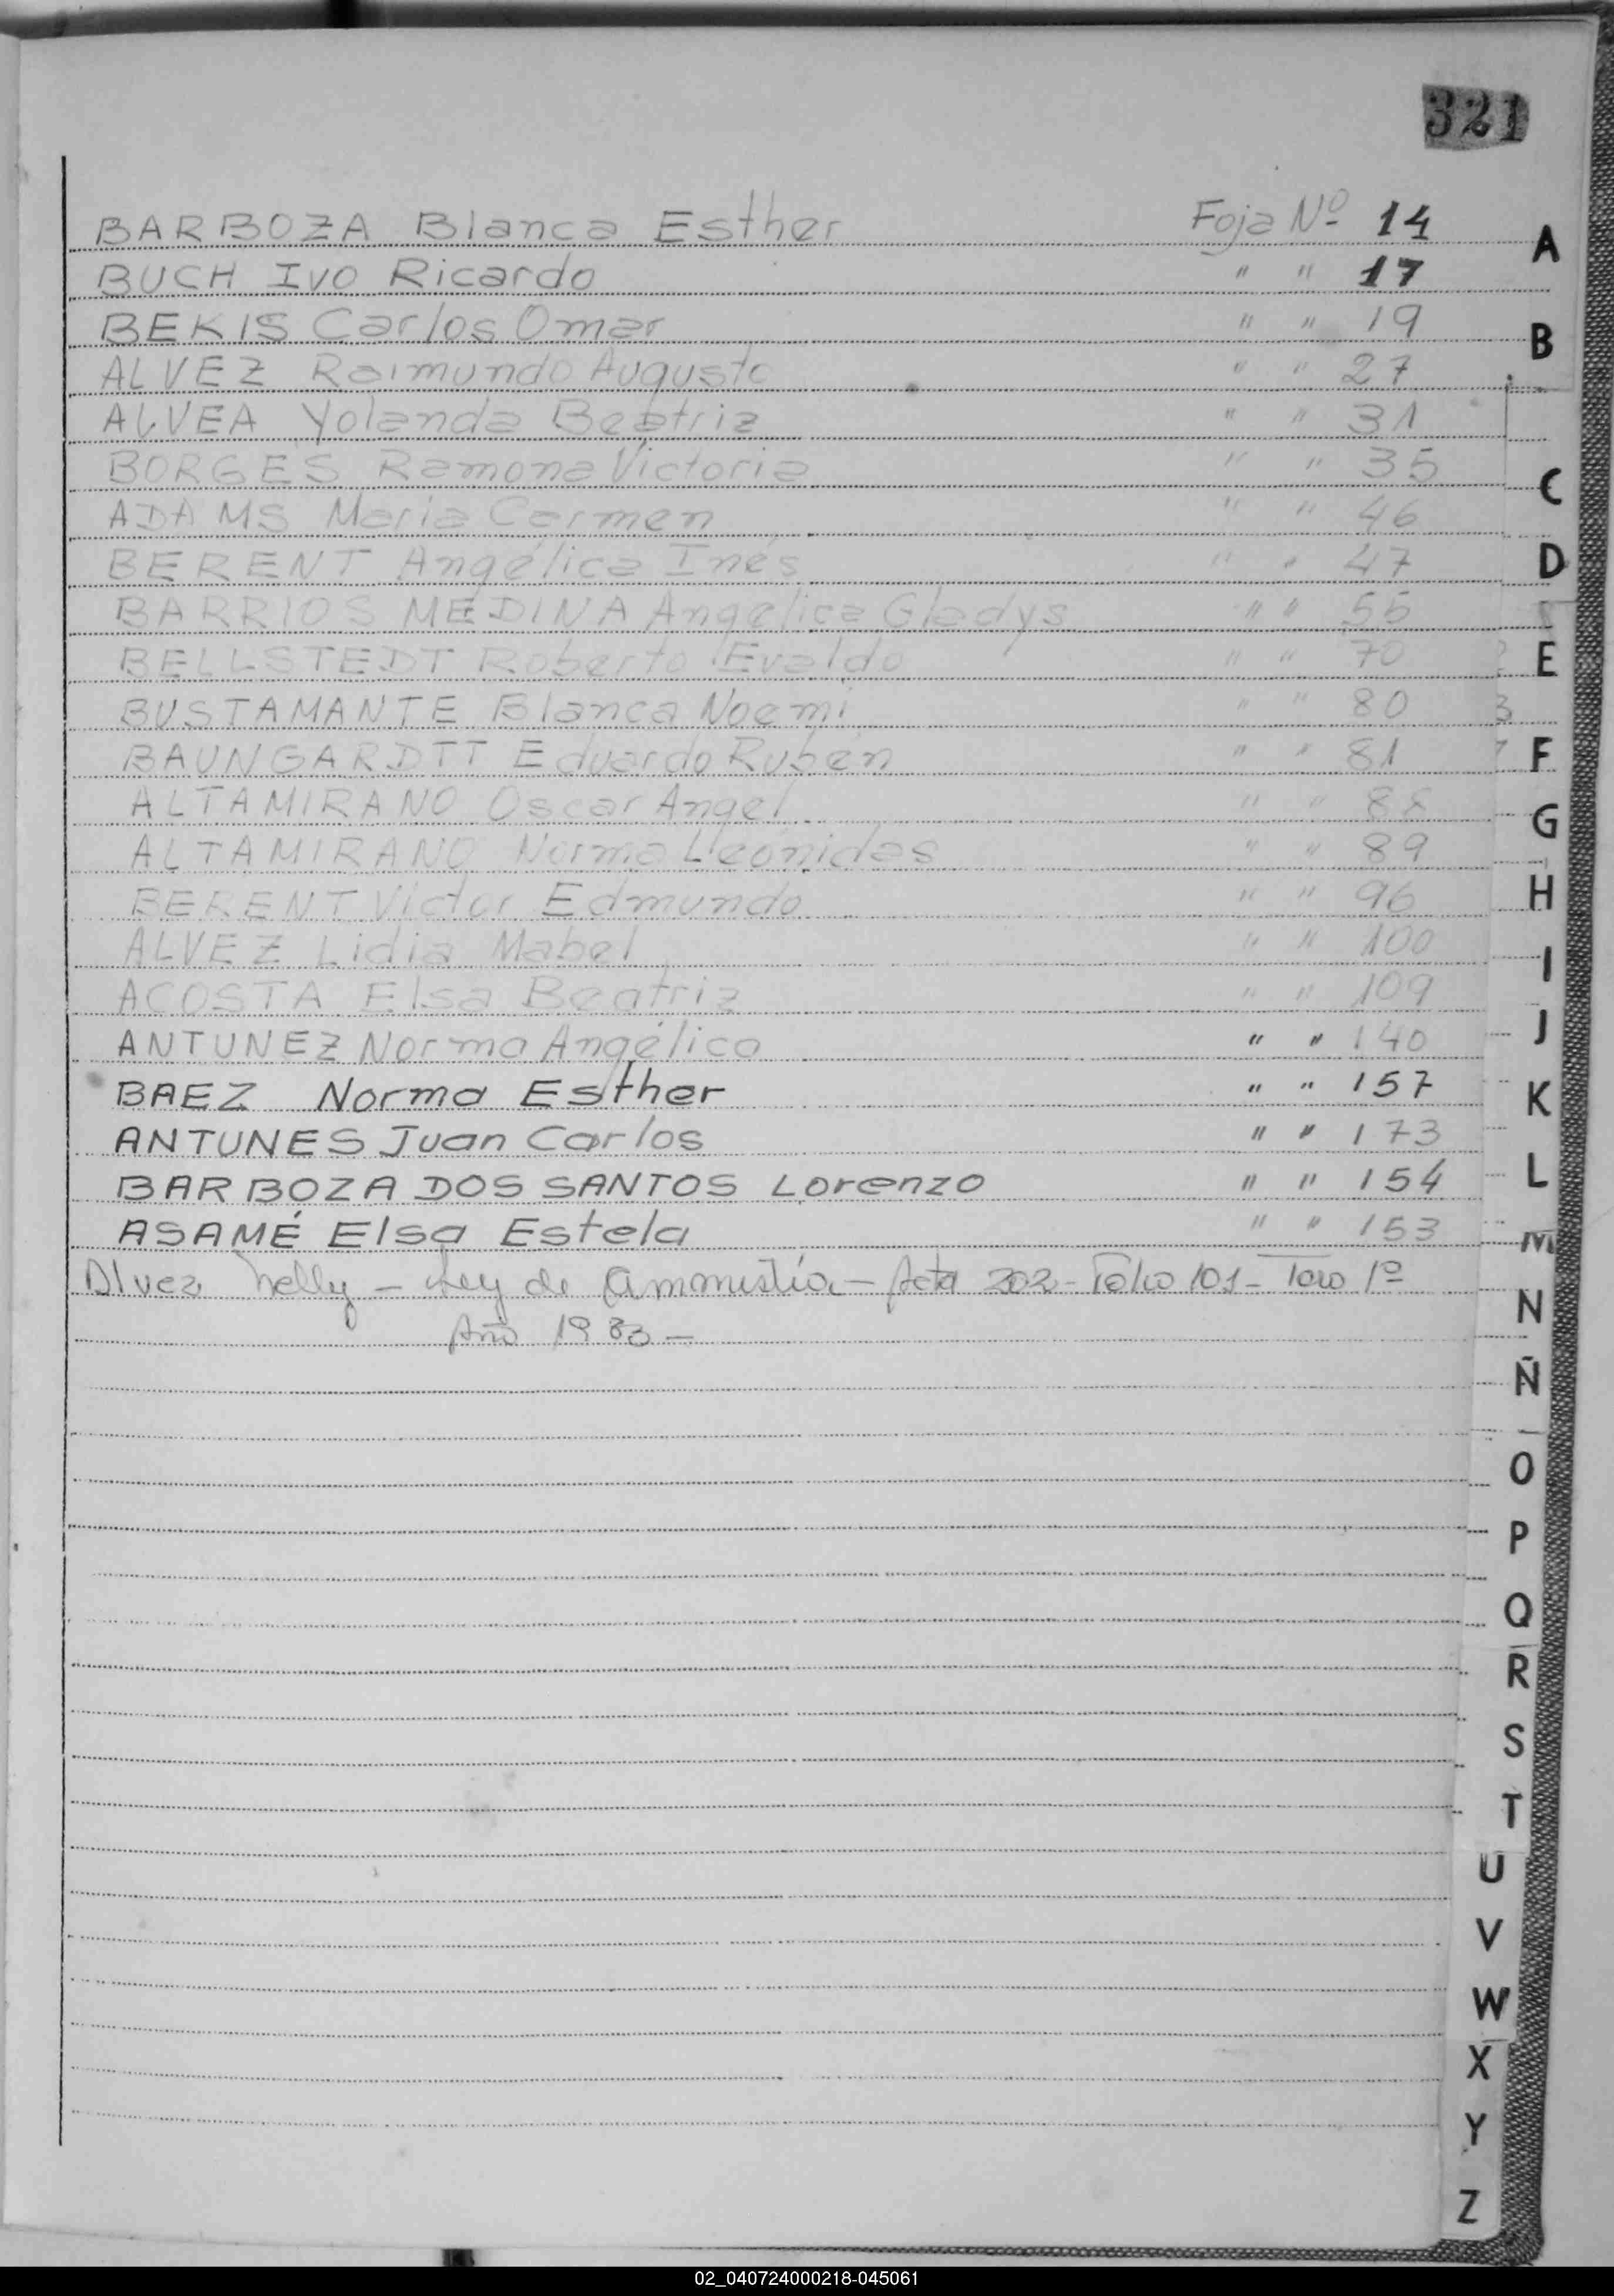 321
BARBOZA Blanca Esther Foja Nº 14
BUCH Ivo Ricardo " " 17
BEKIS Carlos Omar " " 19
ALVEZ Raimundo Augusto " " 27
ALVEA Yolanda Beatriz " " 31
BORGES Ramona Victoria " " 35
ADAMS Maria Carmen " " 46
BERENT Angélica Inés " " 47
BARRIOS MEDINA Angélica Gladys " " 55
BELLSTEDT Roberto Evaldo " " 70
BUSTAMANTE Blanca Noemi " " 80
BAUNGARDTT Eduardo Rubén " " 81
ALTAMIRANO Oscar Angel " " 88
ALTAMIRANO Norma Leónidas " " 89
BERENT Victor Edmundo " " 96
ALVEZ Lidia Mabel " " 100
ACOSTA Elsa Beatriz " " 109
ANTUNEZ Norma Angélica " " 140
BAEZ Norma Esther " " 157
ANTUNES Juan Carlos " " 173
BARBOZA DOS SANTOS Lorenzo " " 154
ASAMÉ Elsa Estela " " 153
Alvez Nelly - Ley de Ammistía - Acta 202 - Folio 101 - Tomo 1º
Año 1983 -
A
B
C
D
E
F
G
H
I
J
K
L
M
N
Ñ
O
P
Q
R
S
T
U
V
W
X
Y
Z
02_040724000218-045061